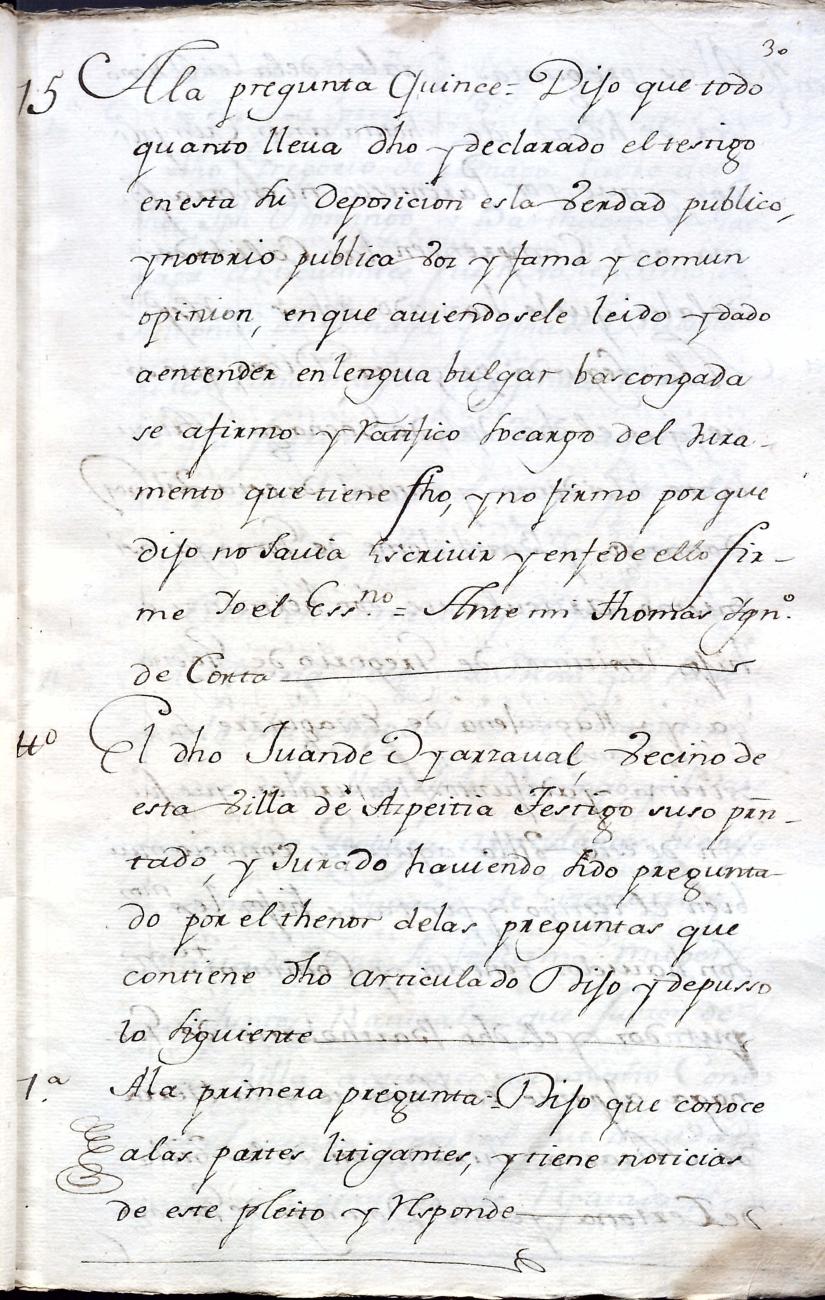 30
15 A la pregunta Quince = Dijo que todo
quanto lleva dho y declarado el testigo
en esta su deposicion es la verdad publico,
y notorio publica voz y fama y comun
opinion, en que aviendosele leido y dado
a entender en lengua bulgar bascongada
se afirmo y Ratifico so cargo del Jura-
mento que tiene fho, y no firmo por que
dijo no savia escrivir y en fe de ello fir-
me Yo el Essno = Ante mi Thomas Ygno.
de Corta
tto El dho Juan de Oyarzaval, vecino de
esta villa de Azpeitia Testigo suso prn-
tado, y Jurado haviendo sido pregunta-
do por el thenor de las preguntas que
contiene dho articulado Dijo y depusso
lo siguiente
1.a A la primera pregunta = Dijo que conoce
a las partes litigantes, y tiene noticias
de este pleito y Responde